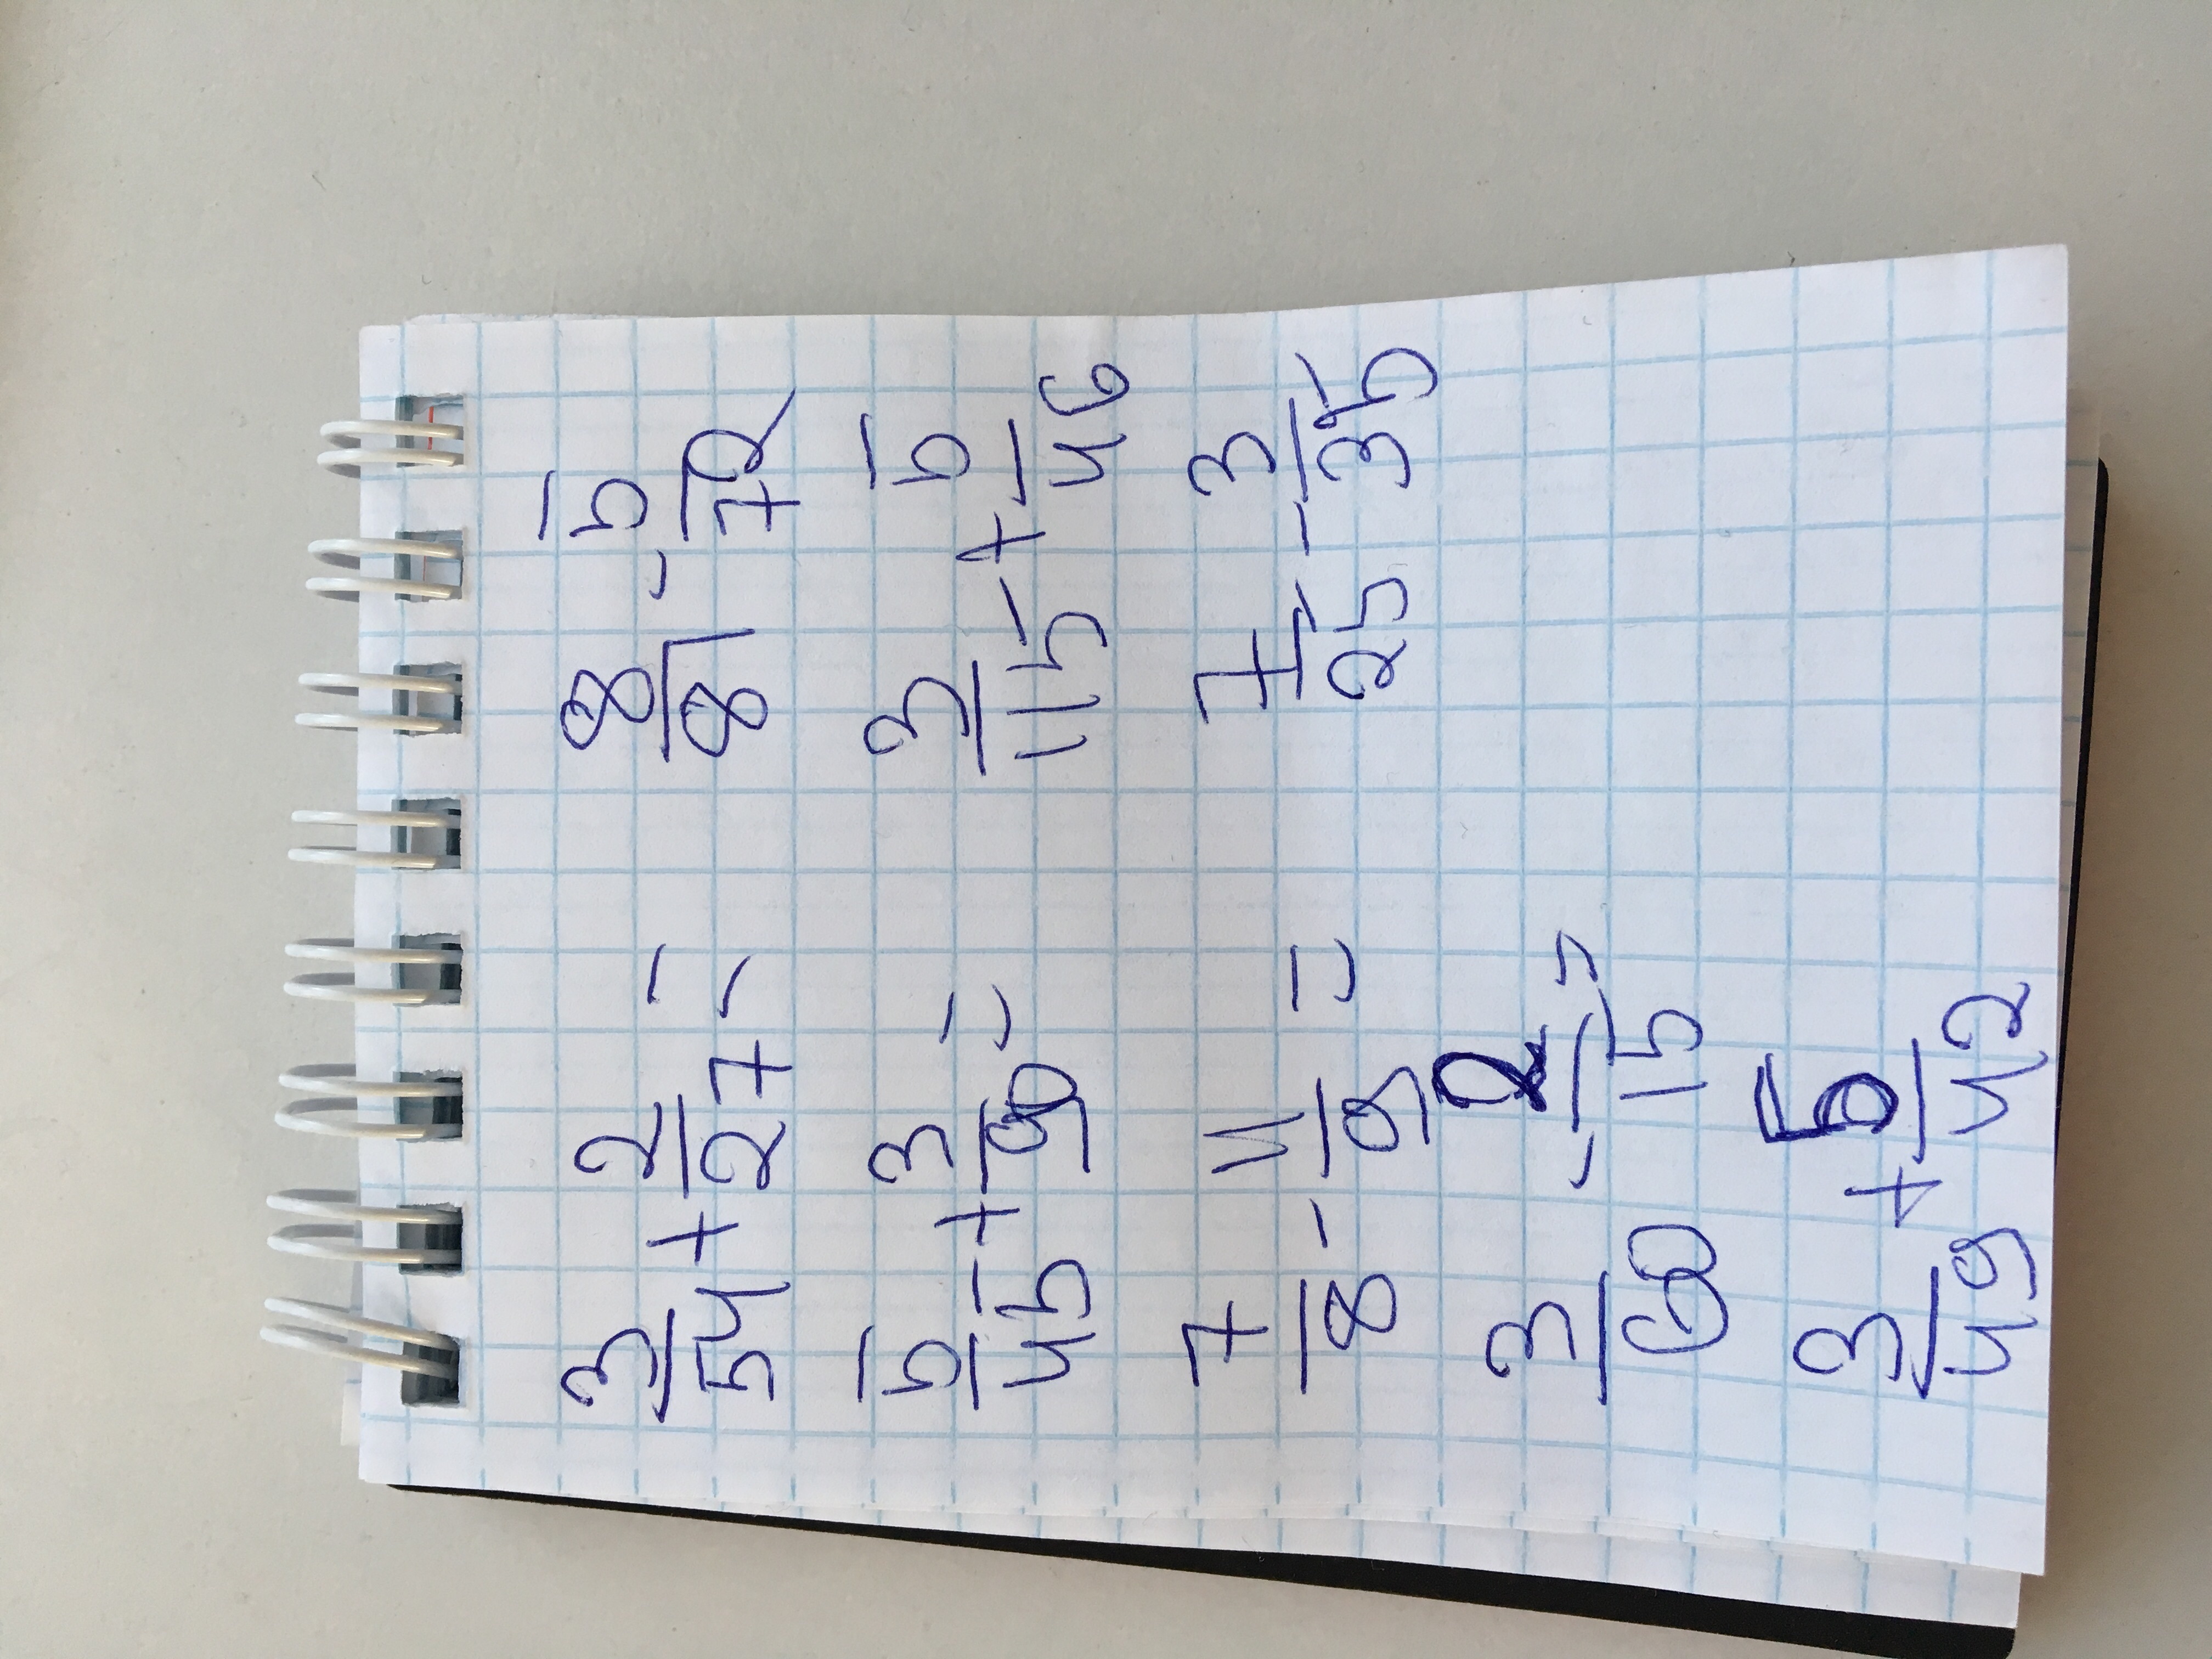 3/54 + 2/27 =
5/45 + 3/90 =
7/8 - 4/9 =
3/60 - 2/15 =
3/49 + 5/42
8/81 - 5/72
3/115 + 5/46
7/25 - 3/35